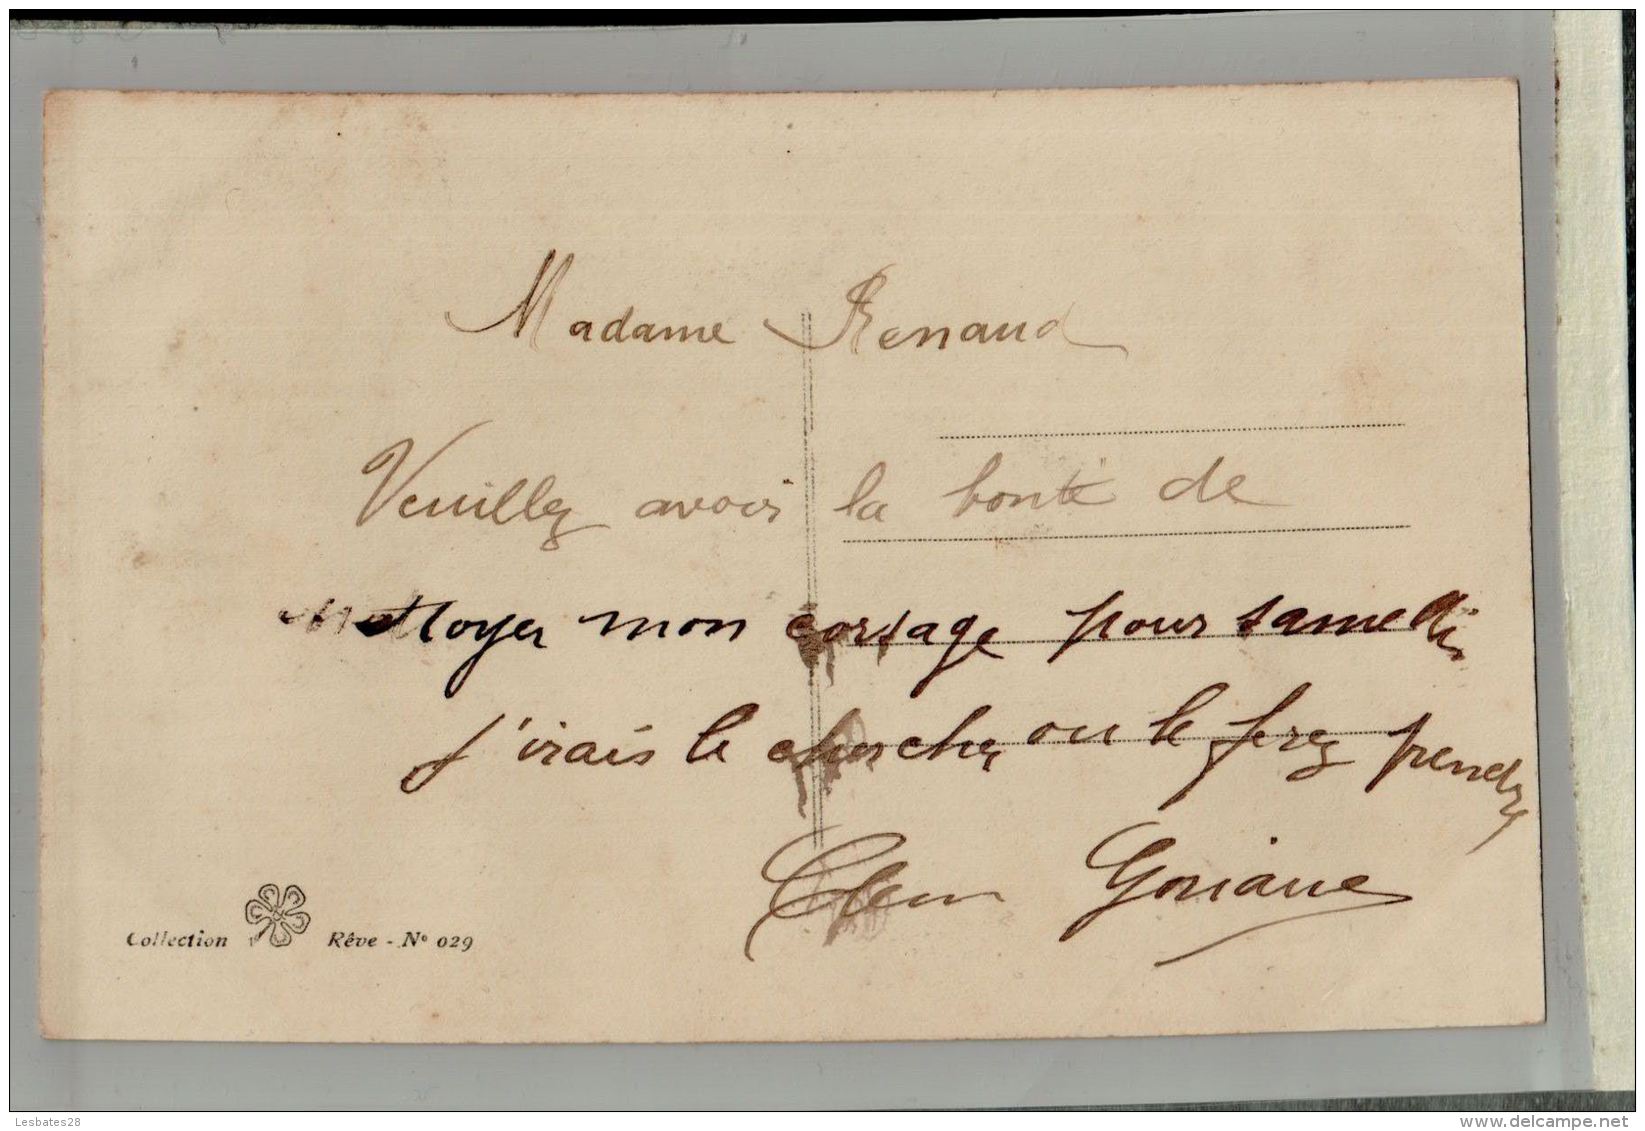 Madame Renaud
Veuillez avoir la bonté de
nettoyer mon corsage pour samedi
j'irais le chercher ou le ferez prendre
Clem Goriaue
Collection Rêve - N° 029
Lesbates28
www.delcampe.net